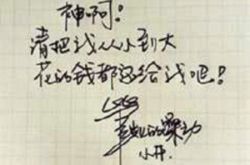 神啊！
请把我从小到大
花的钱都还给我吧！
的躁动
小开.